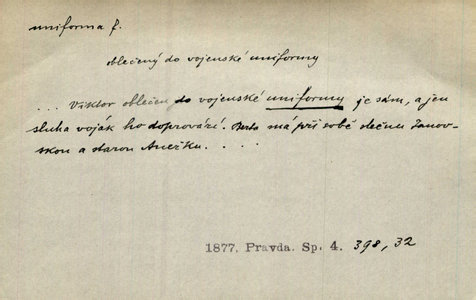 uniforma f.
oblečený do vojenské uniformy
... Viktor oblečen do vojenské uniformy je sám, a jen
sluha voják ho doprovází. Berta má při sobě slečnu Janov-
skou a starou Anežku. . . .
1877. Pravda. Sp. 4. 398, 32